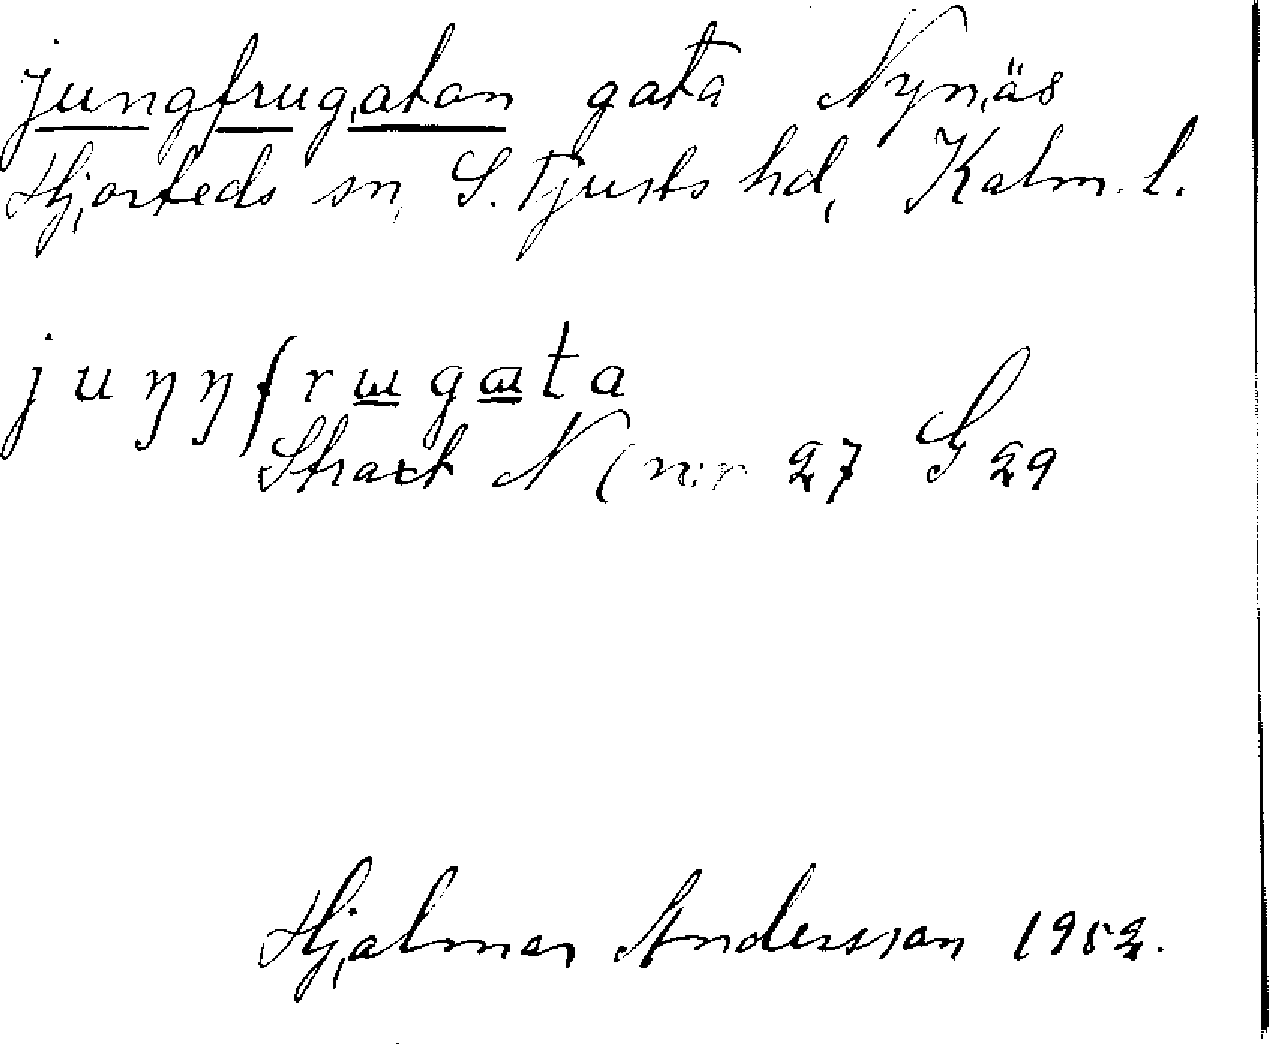 jungfrugatan gata Nynäs
Hjorteds sn, S. Tjusts hd, Kalm. l.
juŋŋfrɯgɑta
Strax N (n:r 27 G 29
Hjalmar Andersson 1952.